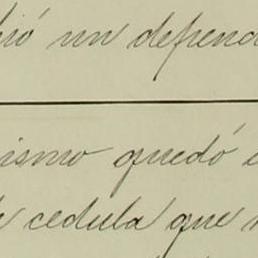 ió un defend
ismo quedó
cedula que